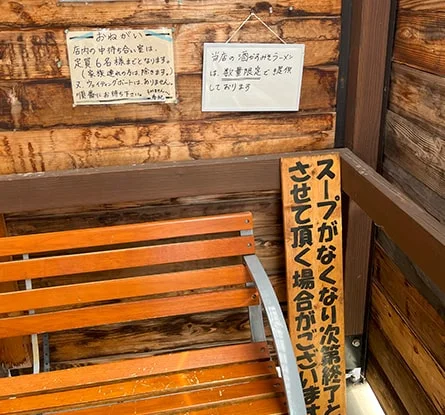 おねがい
店内の中待ち合い室は、
定員6名様までとなります。
(家族連れの方は、除きます。)
又、ウェイティングボードはありません。
順番にお待ち下さい。
当店の酒かすみそラーメン
は、数量限定で提供
しております
スープがなくなり次第終了と
させて頂く場合がございま